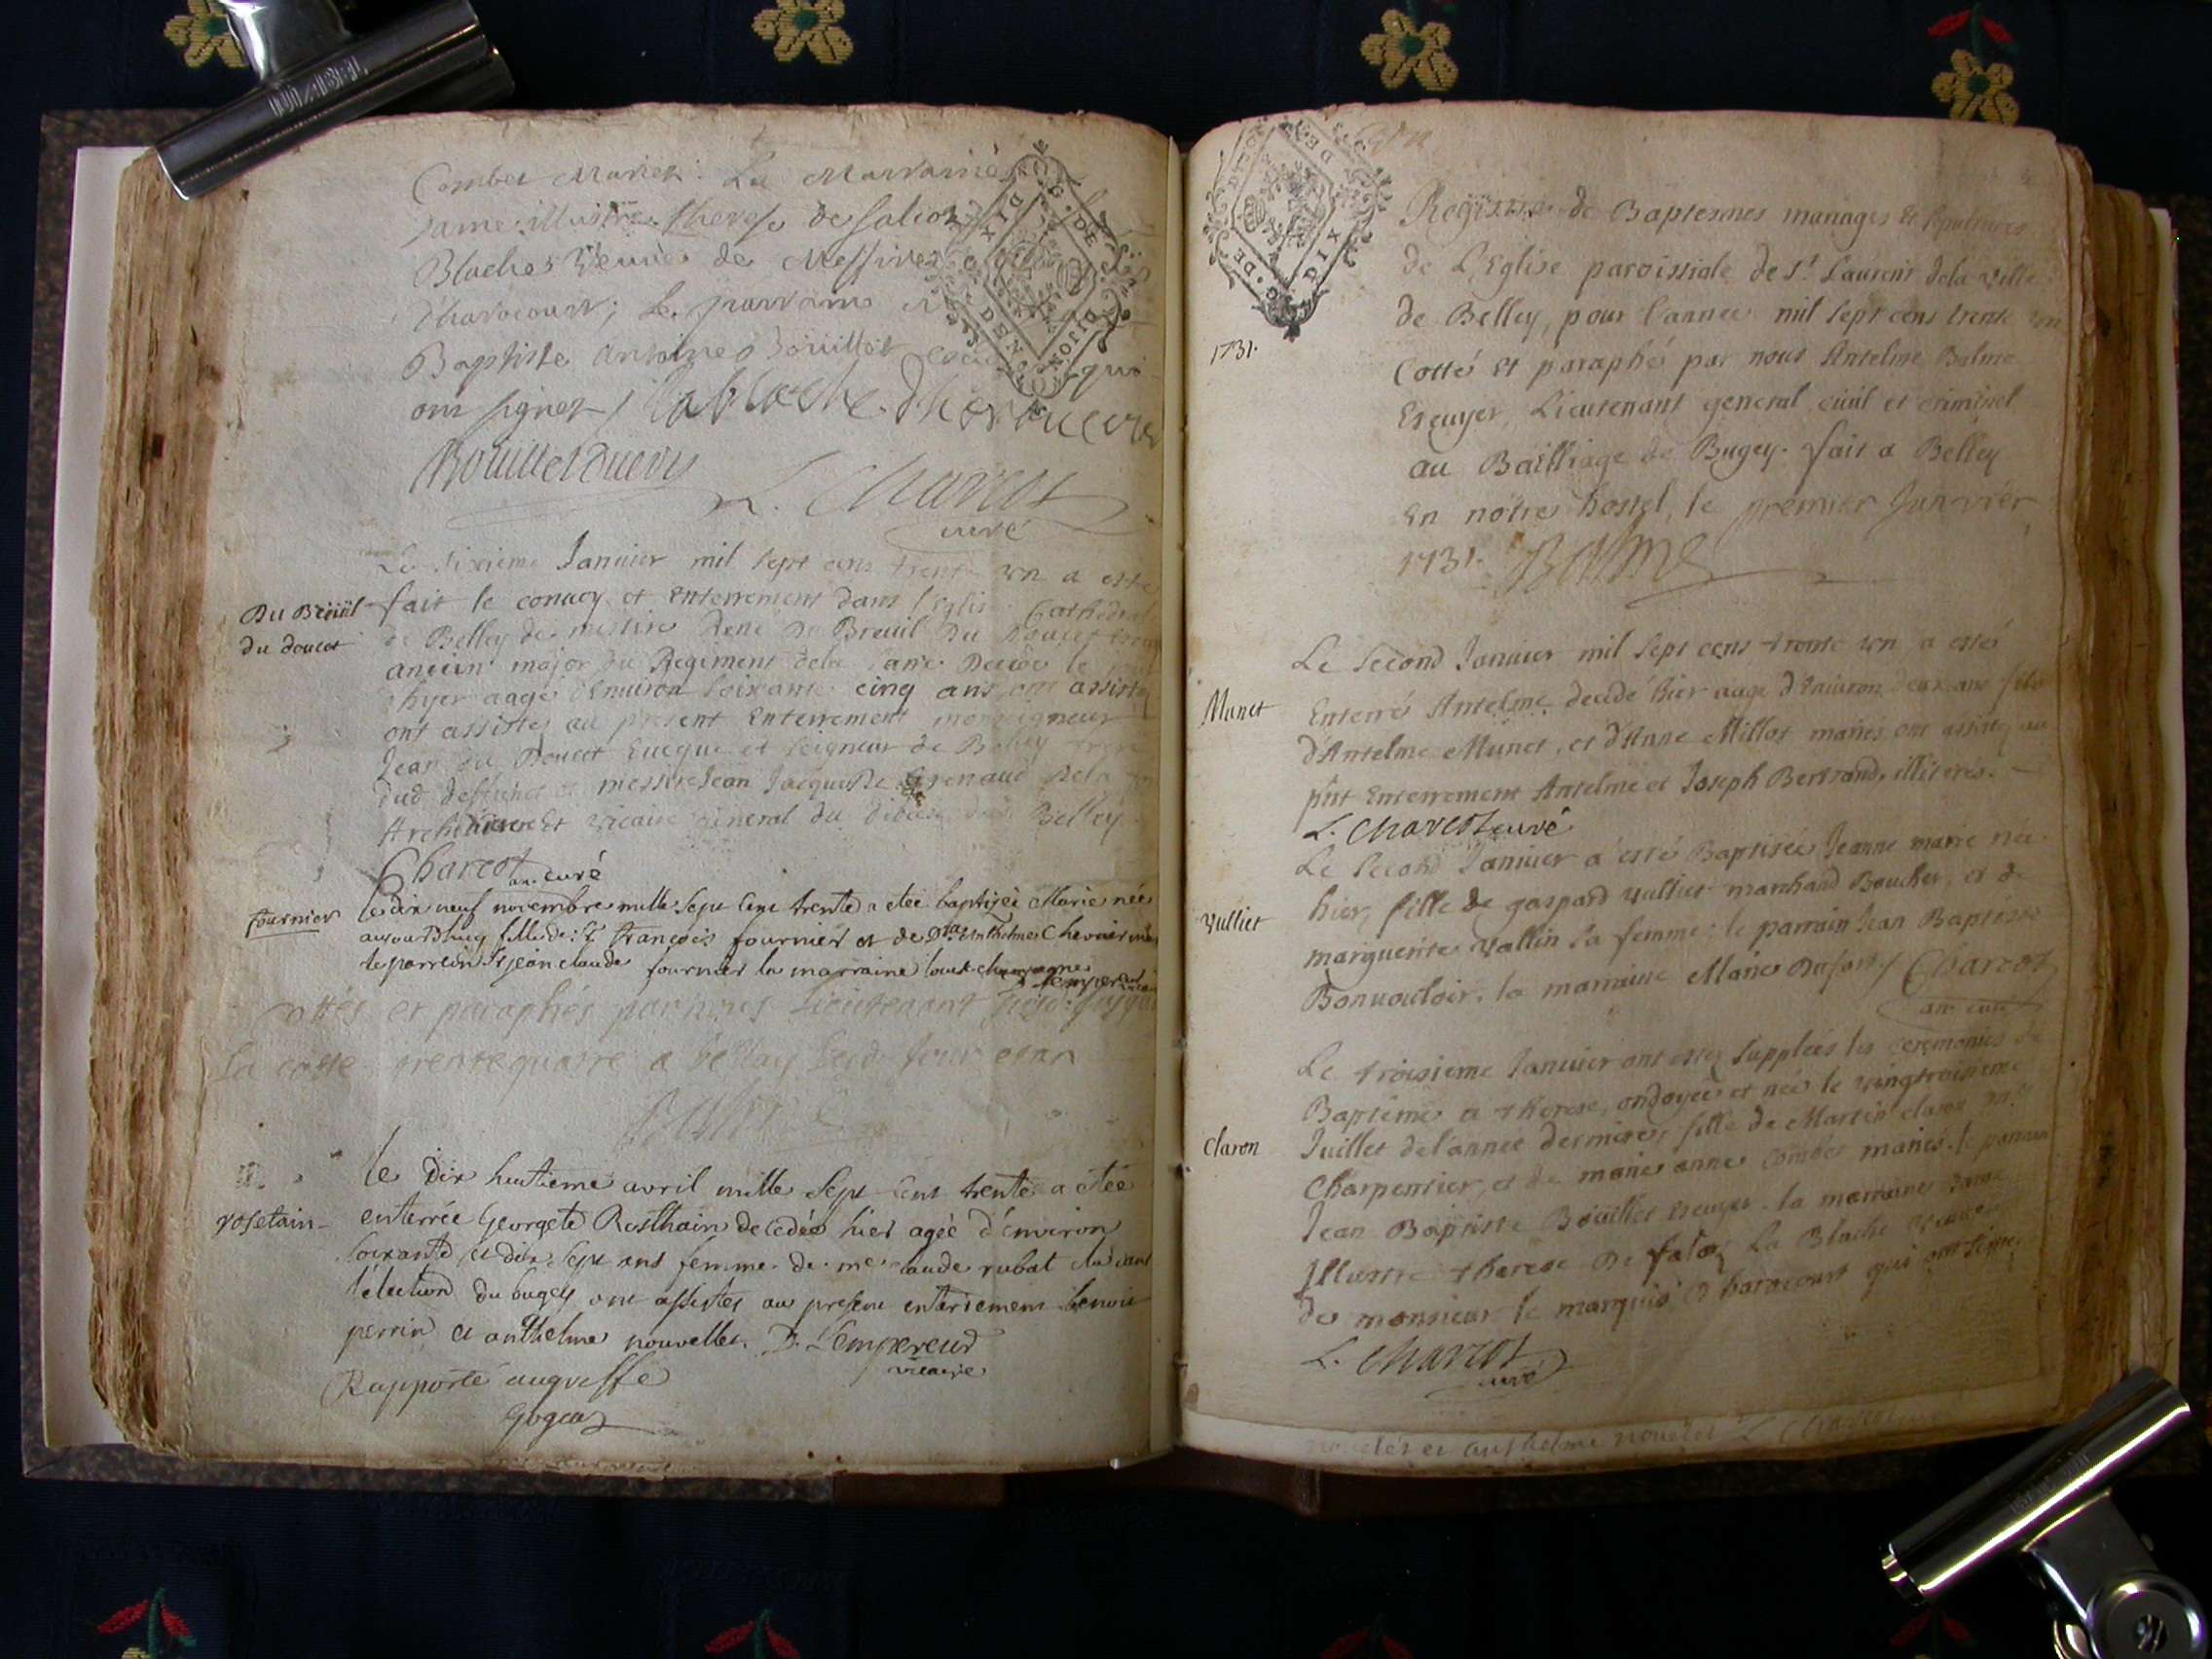 Combet Mariez: La Marraine
Dame illustre therese de falcoz
Blache veuve de Messire
d'haraocourt; le parrain
Baptiste antoine Bouillet qui
ont signez / lablache d'haraucourt
Bouillet
L. Charcot
curé
Le sixieme Januier mil sept cens trente un a esté
Du Breüil
fait le conuoy et Enterrement dans l'Eglise Cathedral
du doucet
de Belley de messire René Du Breuil Du Doucet
ancien major du Regiment dela decede le jour
d'hyer aagé d'Enuiron soixante cinq ans ont assisté
ont assistez au present Enterrement monseigneur
Jean du Doucet Eueque et seigneur de Belley frere
dud deffunct et messire Jean Jacque De Grenaud
Archidiacre Et vicaire general du dioceze de Belley
Charcot
an. curé
fournier
le dix neuf novembre mille sept cent trente a etée baptizée Marie née
aujourdhuy fille de Sr. françois fournier et de Dlle anthelme Chevrier
le parrein Sr jean claude fournier la marraine
Lempereur
cottés et paraphés par nous Lieutenant
la cotte trente quatre a bellay led. jour et an
Balme
le dix huitieme avril mille sept cent trente a etée
rosetain
enterrée Georgete Rosthain decedée hier agée d'environ
soixante et dix sept ans femme de me claude rubat
l'election du bugey ont assistez au present enterrement benoit
perrin et anthelme nouvellet. D. Lempereur
vicaire
Rapporté au greffe
Gogeas
G. DE DIJON
DIX DEN
G. DE DIJON
DIX DE
Registre de Baptesmes mariages Et sepultures
de L'Eglise paroissiale de St. Laurent dela ville
de Belley, pour l'année mil sept cens trente un
1731.
Cotté Et paraphé par nous Antelme Balme
Escuyer, Lieutenant general ciuil et criminel
au Bailliage de Bugey. fait a Belley
En nôtre hostel, le premier Janvier
1731. Balme
Le second Januier mil sept cens trente un a esté
Munet
Enterré Antelme decedé hier aagé d'Enuiron deux ans fils
d'Antelme Munet, et d'Anne Millot mariés ont assisté au
pñt Enterrement Antelme et Joseph Bertrand, illiterés.
L. Charcot curé
Le second Januier a esté Baptisée Jeanne marie née
Vulliet
hier, fille de gaspard Vulliet marchand Boucher, et de
marguerite Vallin sa femme: le parrain Jean Baptiste
Bonuouloir, la marraine Marie Dufour / Charcot
an. curé
Le troisieme Januier ont estez supplées les ceremonies de
Baptême a therese, ondoyée et née le vingtroisieme
Claron
Juillet del'année derniere, fille de Martin claron me
Charpentier, et de marie anne combet mariés. le parrain
Jean Baptiste Bouillet Escuyer. la marraine Dame
Illustre therese De falcoz La Blache veuve
de monsieur le marquis d'haraocourt qui ont signé
L. Charcot
curé
et anthelme nouellet L. Charcot